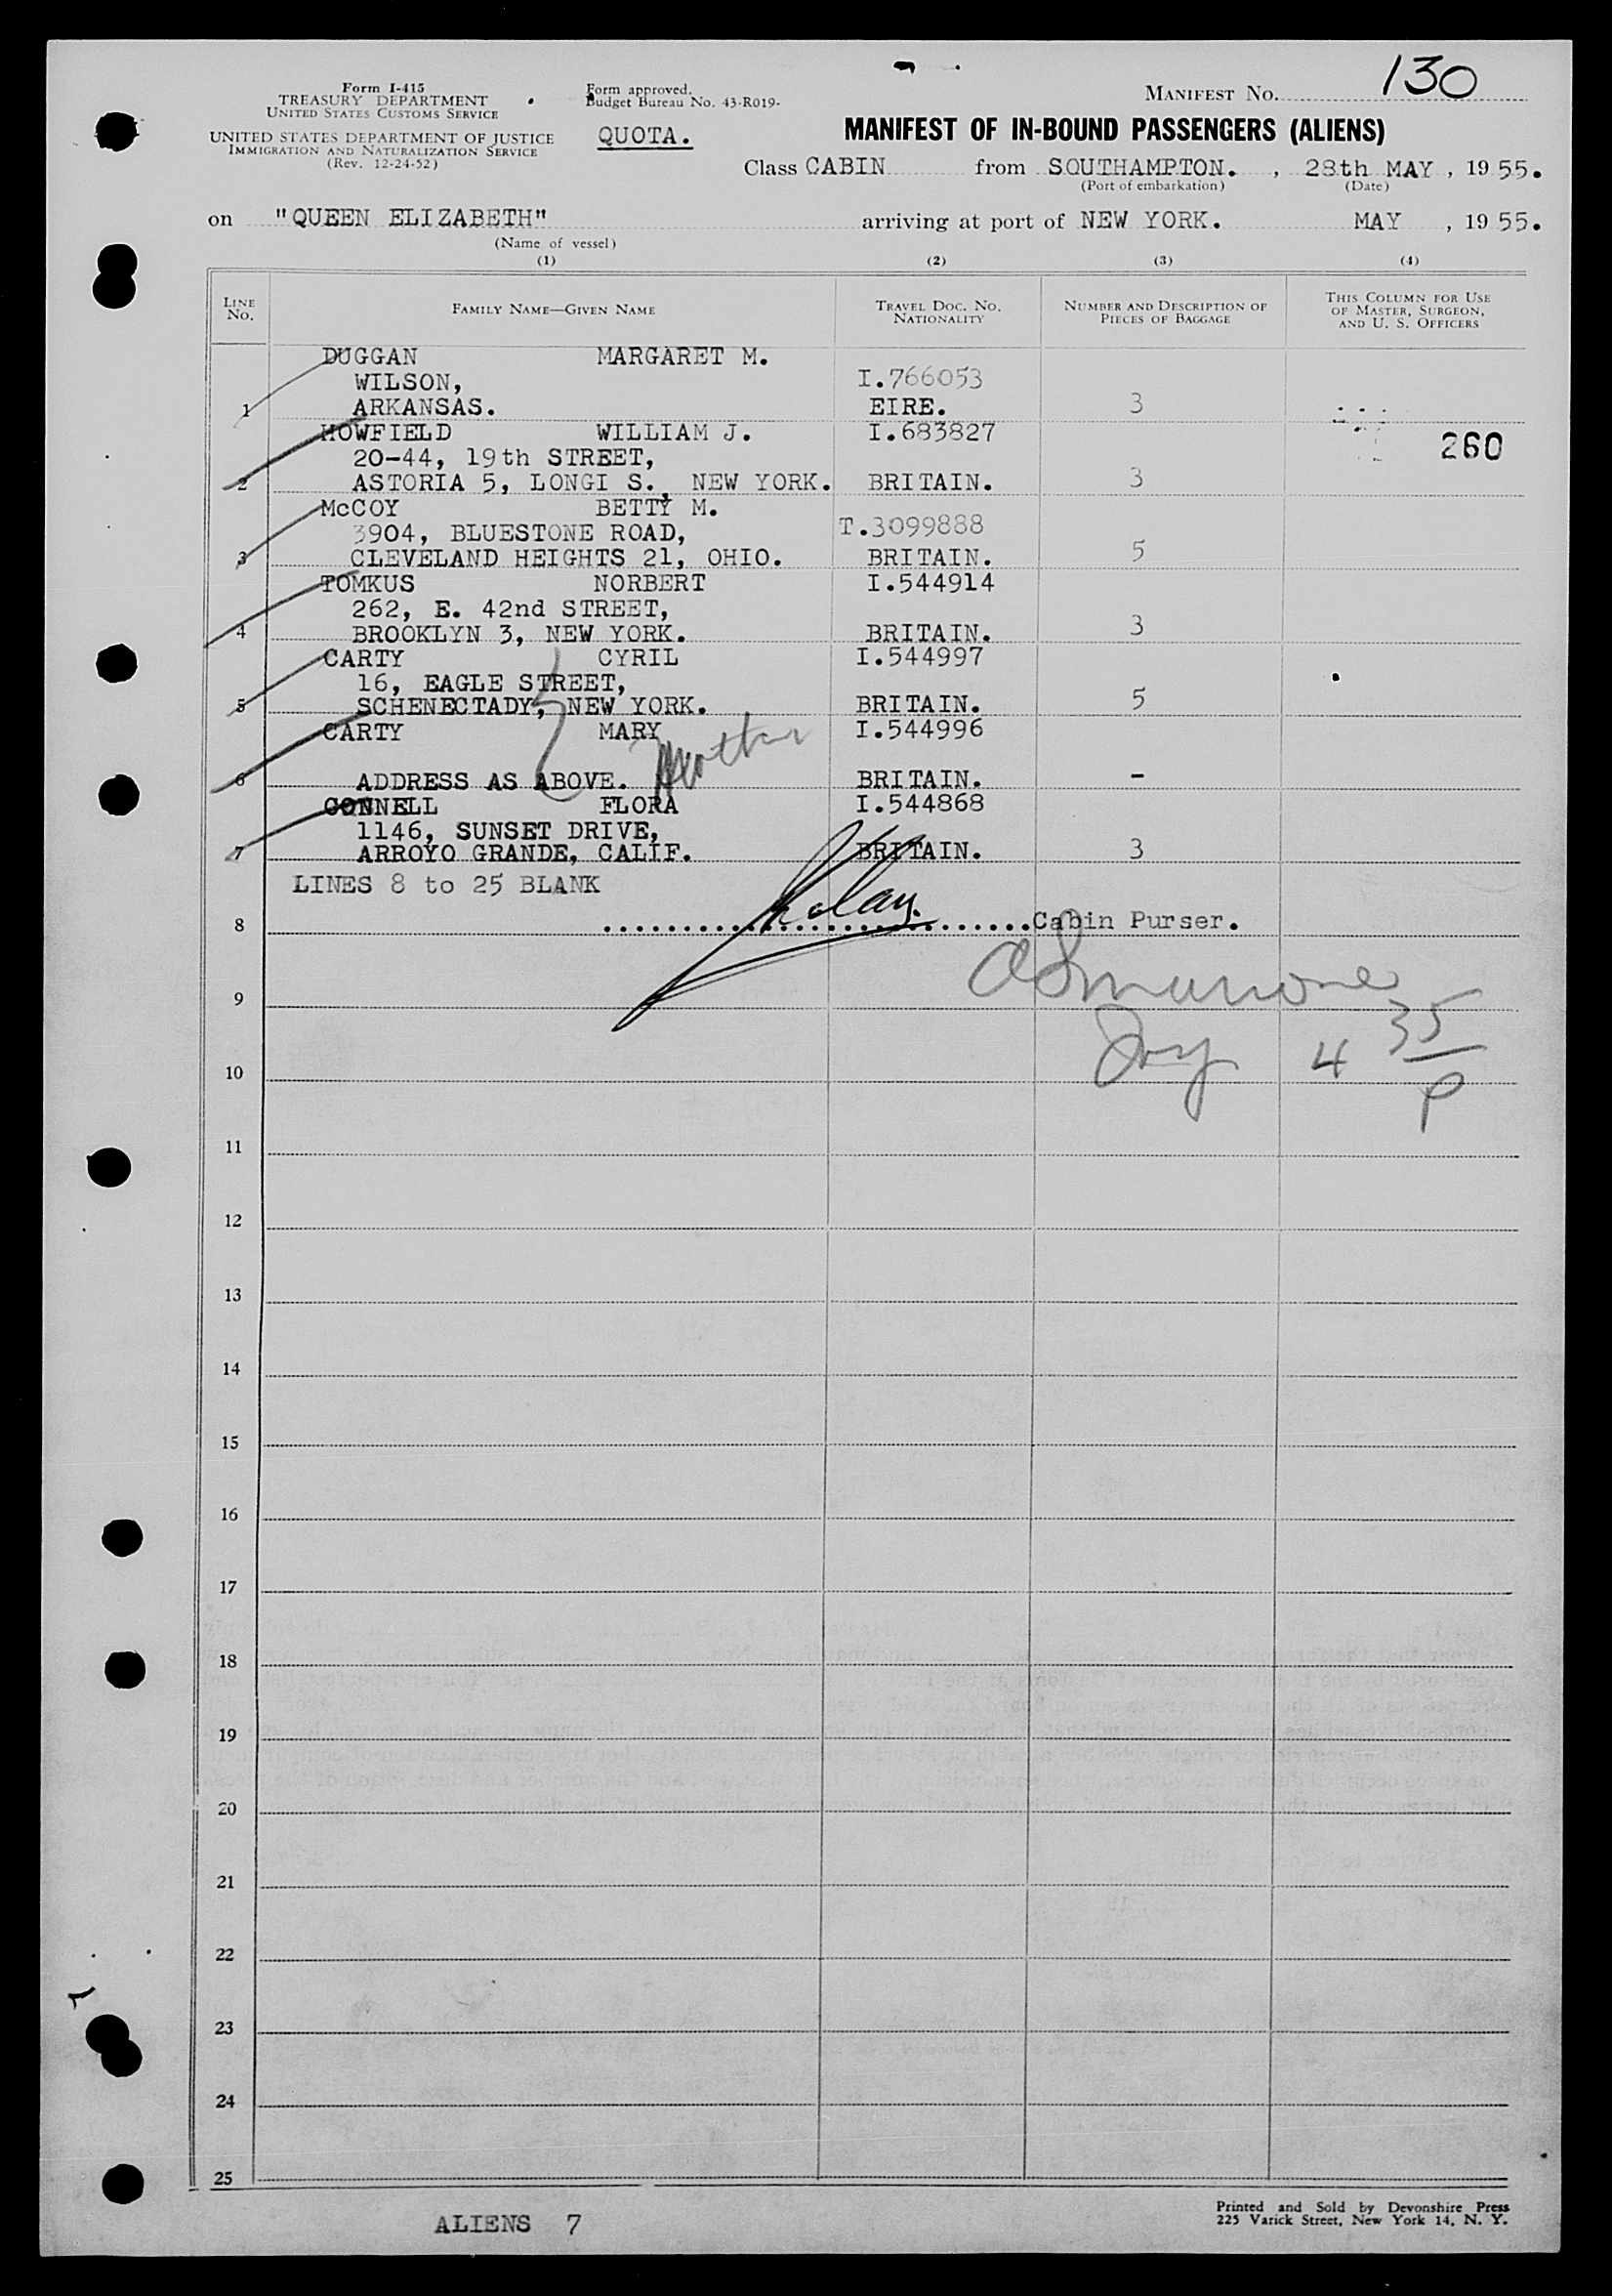 130
Form I-415
TREASURY DEPARTMENT
UNITED STATES CUSTOMS SERVICE
UNITED STATES DEPARTMENT OF JUSTICE
IMMIGRATION AND NATURALIZATION SERVICE
(Rev. 12-24-52)
Form approved.
Budget Bureau No. 43-R019-
QUOTA.
MANIFEST NO.
MANIFEST OF IN-BOUND PASSENGERS (ALIENS)
Class CABIN from SOUTHAMPTON. , 28th MAY , 19 55.
(Port of embarkation) (Date)
on "QUEEN ELIZABETH" arriving at port of NEW YORK. MAY , 19 55.
(Name of vessel)
(1) (2) (3) (4)
LINE NO. FAMILY NAME—GIVEN NAME TRAVEL DOC. NO. NATIONALITY NUMBER AND DESCRIPTION OF PIECES OF BAGGAGE THIS COLUMN FOR USE OF MASTER, SURGEON, AND U. S. OFFICERS
DUGGAN MARGARET M.
WILSON, I.766053
1 ARKANSAS. EIRE. 3
HOWFIELD WILLIAM J. I.683827
260
20-44, 19th STREET,
2 ASTORIA 5, LONGI S., NEW YORK. BRITAIN. 3
McCOY BETTY M.
3904, BLUESTONE ROAD, T.3099888
3 CLEVELAND HEIGHTS 21, OHIO. BRITAIN. 5
TOMKUS NORBERT I.544914
262, E. 42nd STREET,
4 BROOKLYN 3, NEW YORK. BRITAIN. 3
CARTY CYRIL I.544997
16, EAGLE STREET,
5 SCHENECTADY, NEW YORK. BRITAIN. 5
CARTY MARY I.544996
Mother
6 ADDRESS AS ABOVE. BRITAIN. -
CONNELL FLORA I.544868
1146, SUNSET DRIVE,
7 ARROYO GRANDE, CALIF. BRITAIN. 3
LINES 8 to 25 BLANK
8 Cabin Purser.
9
4 35/P
10
11
12
13
14
15
16
17
18
19
20
21
22
23
24
25
ALIENS 7
Printed and Sold by Devonshire Press
225 Varick Street, New York 14, N. Y.